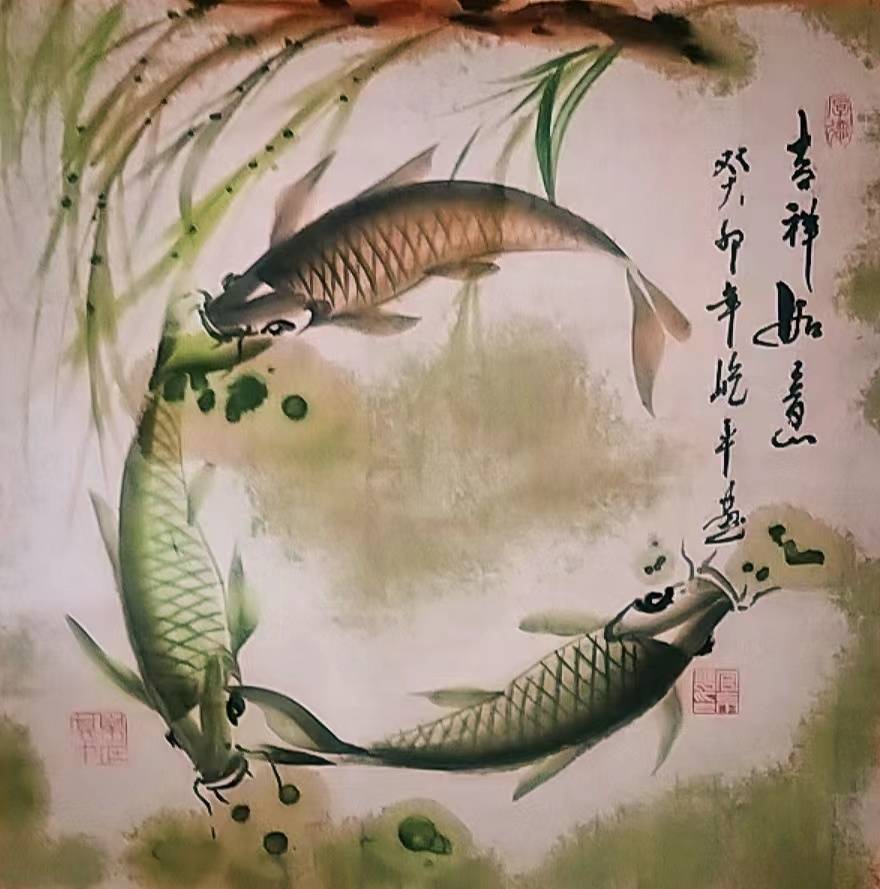 吉祥如意
癸卯年屹平画